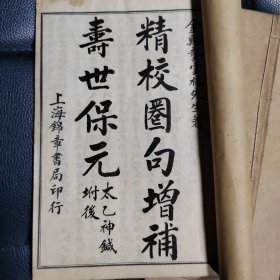 精校圈句增補
壽世保元
太乙神鍼
坿後
上海錦章書局印行